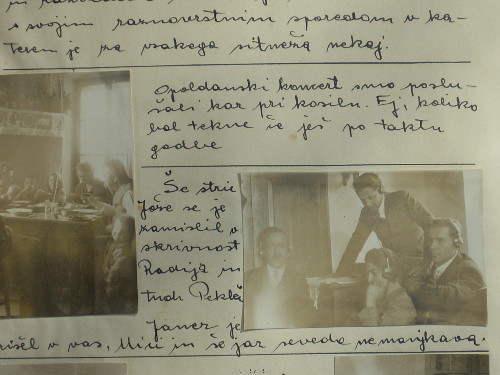 s svojim raznovrstnim sporedom v ka-
terem je za vsakega sitneža nekaj.
Opoldanski koncert smo poslu-
šali kar pri kosilu. Ej, koliko
bol tekne če ješ po taktu
godbe
Še stric
Jože se je
zamislil v
skrivnost
Radija in
tudi
Janez je
v vas, Mici in še jaz seveda ne manjkava.